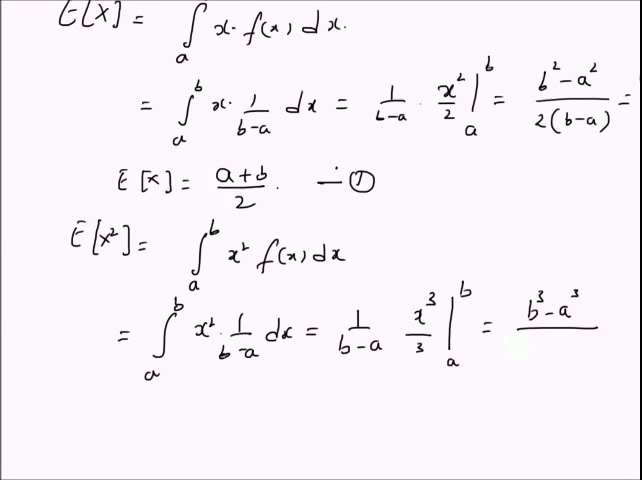 E[X] = ∫ₐ x. f(x) dx.
= ∫ₐᵇ x. 1/(b-a) dx = 1/(b-a) . x²/2 |ₐᵇ = (b² - a²)/(2(b-a)) =
E[X] = (a+b)/2. — ①
E[X²] = ∫ₐᵇ x² f(x) dx
= ∫ₐᵇ x². 1/(b-a) dx = 1/(b-a) x³/3 |ₐᵇ = (b³ - a³)/